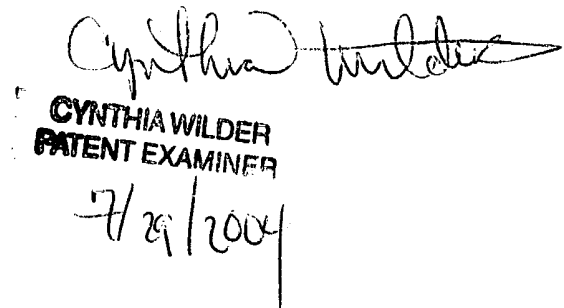 Cynthia Wilder
CYNTHIA WILDER
PATENT EXAMINER
7/29/2004